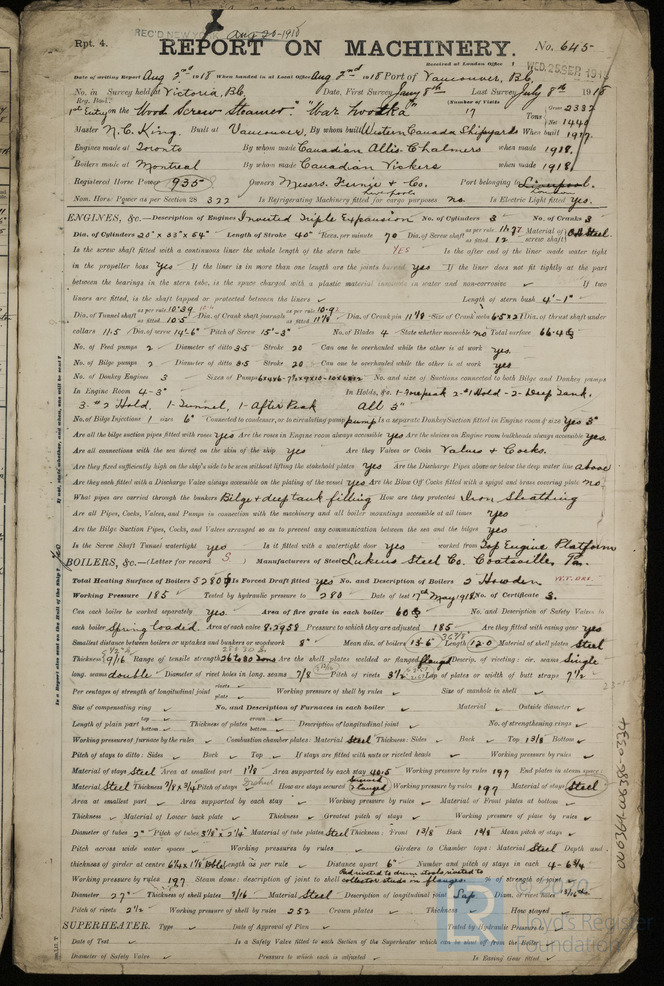 REC'D NEW YORK Aug 20-1918
Rpt. 4.
REPORT ON MACHINERY.
No. 645
Received at London Office WED. 25 SEP 1918
Date of writing Report Aug 2nd 1918 When handed in at Local Office Aug 2nd 1918 Port of Vancouver, B.C.
No. in Survey held at Victoria, B.C. Date, First Survey Jany 8th Last Survey July 8th 1918
Reg. Book. (Number of Visits 17
1st Entry on the Wood Screw Steamer "War Tons Gross 2337
Net 1440
Master N.C. King. Built at Vancouver. By whom built Western Canada Shipyards When built 1917.
Engines made at Toronto By whom made Canadian Allis Chalmers when made 1918.
Boilers made at Montreal By whom made Canadian Vickers when made 1918.
Registered Horse Power 935 Owners Messrs. & Co. Port belonging to Liverpool. London
Nom. Horse Power as per Section 28 322 Is Refrigerating Machinery fitted for cargo purposes no. Is Electric Light fitted yes.
ENGINES, &c.—Description of Engines Inverted Triple Expansion No. of Cylinders 3 No. of Cranks 3
Dia. of Cylinders 20" x 33" x 54" Length of Stroke 40" Revs. per minute 70 Dia. of Screw shaft as per rule 11.77 as fitted 12 Material of screw shaft Steel
Is the screw shaft fitted with a continuous liner the whole length of the stern tube YES Is the after end of the liner made water tight
in the propeller boss yes If the liner is in more than one length are the joints burned yes If the liner does not fit tightly at the part
between the bearings in the stern tube, is the space charged with a plastic material insoluble in water and non-corrosive ✓ If two
liners are fitted, is the shaft lapped or protected between the liners ✓ Length of stern bush 4'-1"
Dia. of Tunnel shaft as per rule 10.39 as fitted 10.5 Dia. of Crank shaft journals as per rule 10.91 as fitted 11 1/8 Dia. of Crank pin 11 1/8 Size of Crank webs 6.5 x 21 Dia. of thrust shaft under
collars 11.5 Dia. of screw 14'-6" Pitch of Screw 15'-3" No. of Blades 4 State whether moveable no Total surface 66.4
No. of Feed pumps 2 Diameter of ditto 3.5 Stroke 20 Can one be overhauled while the other is at work yes.
No. of Bilge pumps 2 Diameter of ditto 3.5 Stroke 20 Can one be overhauled while the other is at work yes
No. of Donkey Engines 3 Sizes of Pumps No. and size of Suctions connected to both Bilge and Donkey pumps
In Engine Room 4-3" In Holds, &c. 1-Forepeak 2-#1 Hold - 2-Deep Tank.
3-#2 Hold, 1-Tunnel, 1-After Peak All 3"
No. of Bilge Injections 1 sizes 6" Connected to condenser, or to circulating pump pump Is a separate Donkey Suction fitted in Engine room & size Yes 3"
Are all the bilge suction pipes fitted with roses yes Are the roses in Engine room always accessible yes Are the sluices on Engine room bulkheads always accessible yes.
Are all connections with the sea direct on the skin of the ship yes Are they Valves or Cocks Valves & Cocks.
Are they fixed sufficiently high on the ship's side to be seen without lifting the stokehold plates yes Are the Discharge Pipes above or below the deep water line above
Are they each fitted with a Discharge Valve always accessible on the plating of the vessel yes Are the Blow Off Cocks fitted with a spigot and brass covering plate no
What pipes are carried through the bunkers Bilge & deep tank filling How are they protected Iron Sheathing
Are all Pipes, Cocks, Valves, and Pumps in connection with the machinery and all boiler mountings accessible at all times yes
Are the Bilge Suction Pipes, Cocks, and Valves arranged so as to prevent any communication between the sea and the bilges yes
Is the Screw Shaft Tunnel watertight yes Is it fitted with a watertight door yes worked from Top Engine Platform
BOILERS, &c.—(Letter for record S ) Manufacturers of Steel Lukens Steel Co. Coatesville, Pa.
Total Heating Surface of Boilers 5280 Is Forced Draft fitted yes No. and Description of Boilers 2 Howden
Working Pressure 185 Tested by hydraulic pressure to 280 Date of test 17th May 1918 No. of Certificate 3.
Can each boiler be worked separately yes Area of fire grate in each boiler 60 No. and Description of Safety Valves to
each boiler Spring loaded Area of each valve 8.2958 Pressure to which they are adjusted 185 Are they fitted with easing gear yes
Smallest distance between boilers or uptakes and bunkers or woodwork 8" Mean dia. of boilers 13-6 Length 12-0 Material of shell plates Steel
Thickness 9/16 Range of tensile strength Are the shell plates welded or flanged Descrip. of riveting: cir. seams Single
long. seams double Diameter of rivet holes in long. seams 7/8 Pitch of rivets 3 1/2 Lap of plates or width of butt straps 7 1/2
Per centages of strength of longitudinal joint rivets plate Working pressure of shell by rules Size of manhole in shell
Size of compensating ring No. and Description of Furnaces in each boiler Material Outside diameter
Length of plain part top bottom Thickness of plates crown bottom Description of longitudinal joint No. of strengthening rings
Working pressure of furnace by the rules Combustion chamber plates: Material Steel Thickness: Sides Back Top 13/8 Bottom
Pitch of stays to ditto: Sides Back Top If stays are fitted with nuts or riveted heads Working pressure by rules
Material of stays Steel Area at smallest part 1 7/8 Area supported by each stay 40.5 Working pressure by rules 197 End plates in steam space:
Material Steel Thickness Pitch of stays How are stays secured Screwed Flanged Working pressure by rules 197 Material of stays Steel
Area at smallest part Area supported by each stay Working pressure by rules Material of Front plates at bottom
Thickness Material of Lower back plate Thickness Greatest pitch of stays Working pressure of plate by rules
Diameter of tubes 2" Pitch of tubes 3 1/8" x 2 1/4" Material of tube plates Steel Thickness: Front 13/8 Back Mean pitch of stays
Pitch across wide water spaces Working pressures by rules Girders to Chamber tops: Material Steel Depth and
thickness of girder at centre Length as per rule Distance apart 6" Number and pitch of stays in each 4-6 3/4
Working pressure by rules 197 Steam dome: description of joint to shell % of strength of joint
Diameter 27" Thickness of shell plates 7/16 Material Steel Description of longitudinal joint Lap Diam. of rivet holes
Pitch of rivets 2 1/2 Working pressure of shell by rules 252 Crown plates Thickness How stayed
SUPERHEATER. Type Date of Approval of Plan Tested by Hydraulic Pressure to
Date of Test Is a Safety Valve fitted to each Section of the Superheater which can be shut off from the Boiler
Diameter of Safety Valve Pressure to which each is adjusted Is Easing Gear fitted
LR
© 2020
Lloyd's Register
Foundation